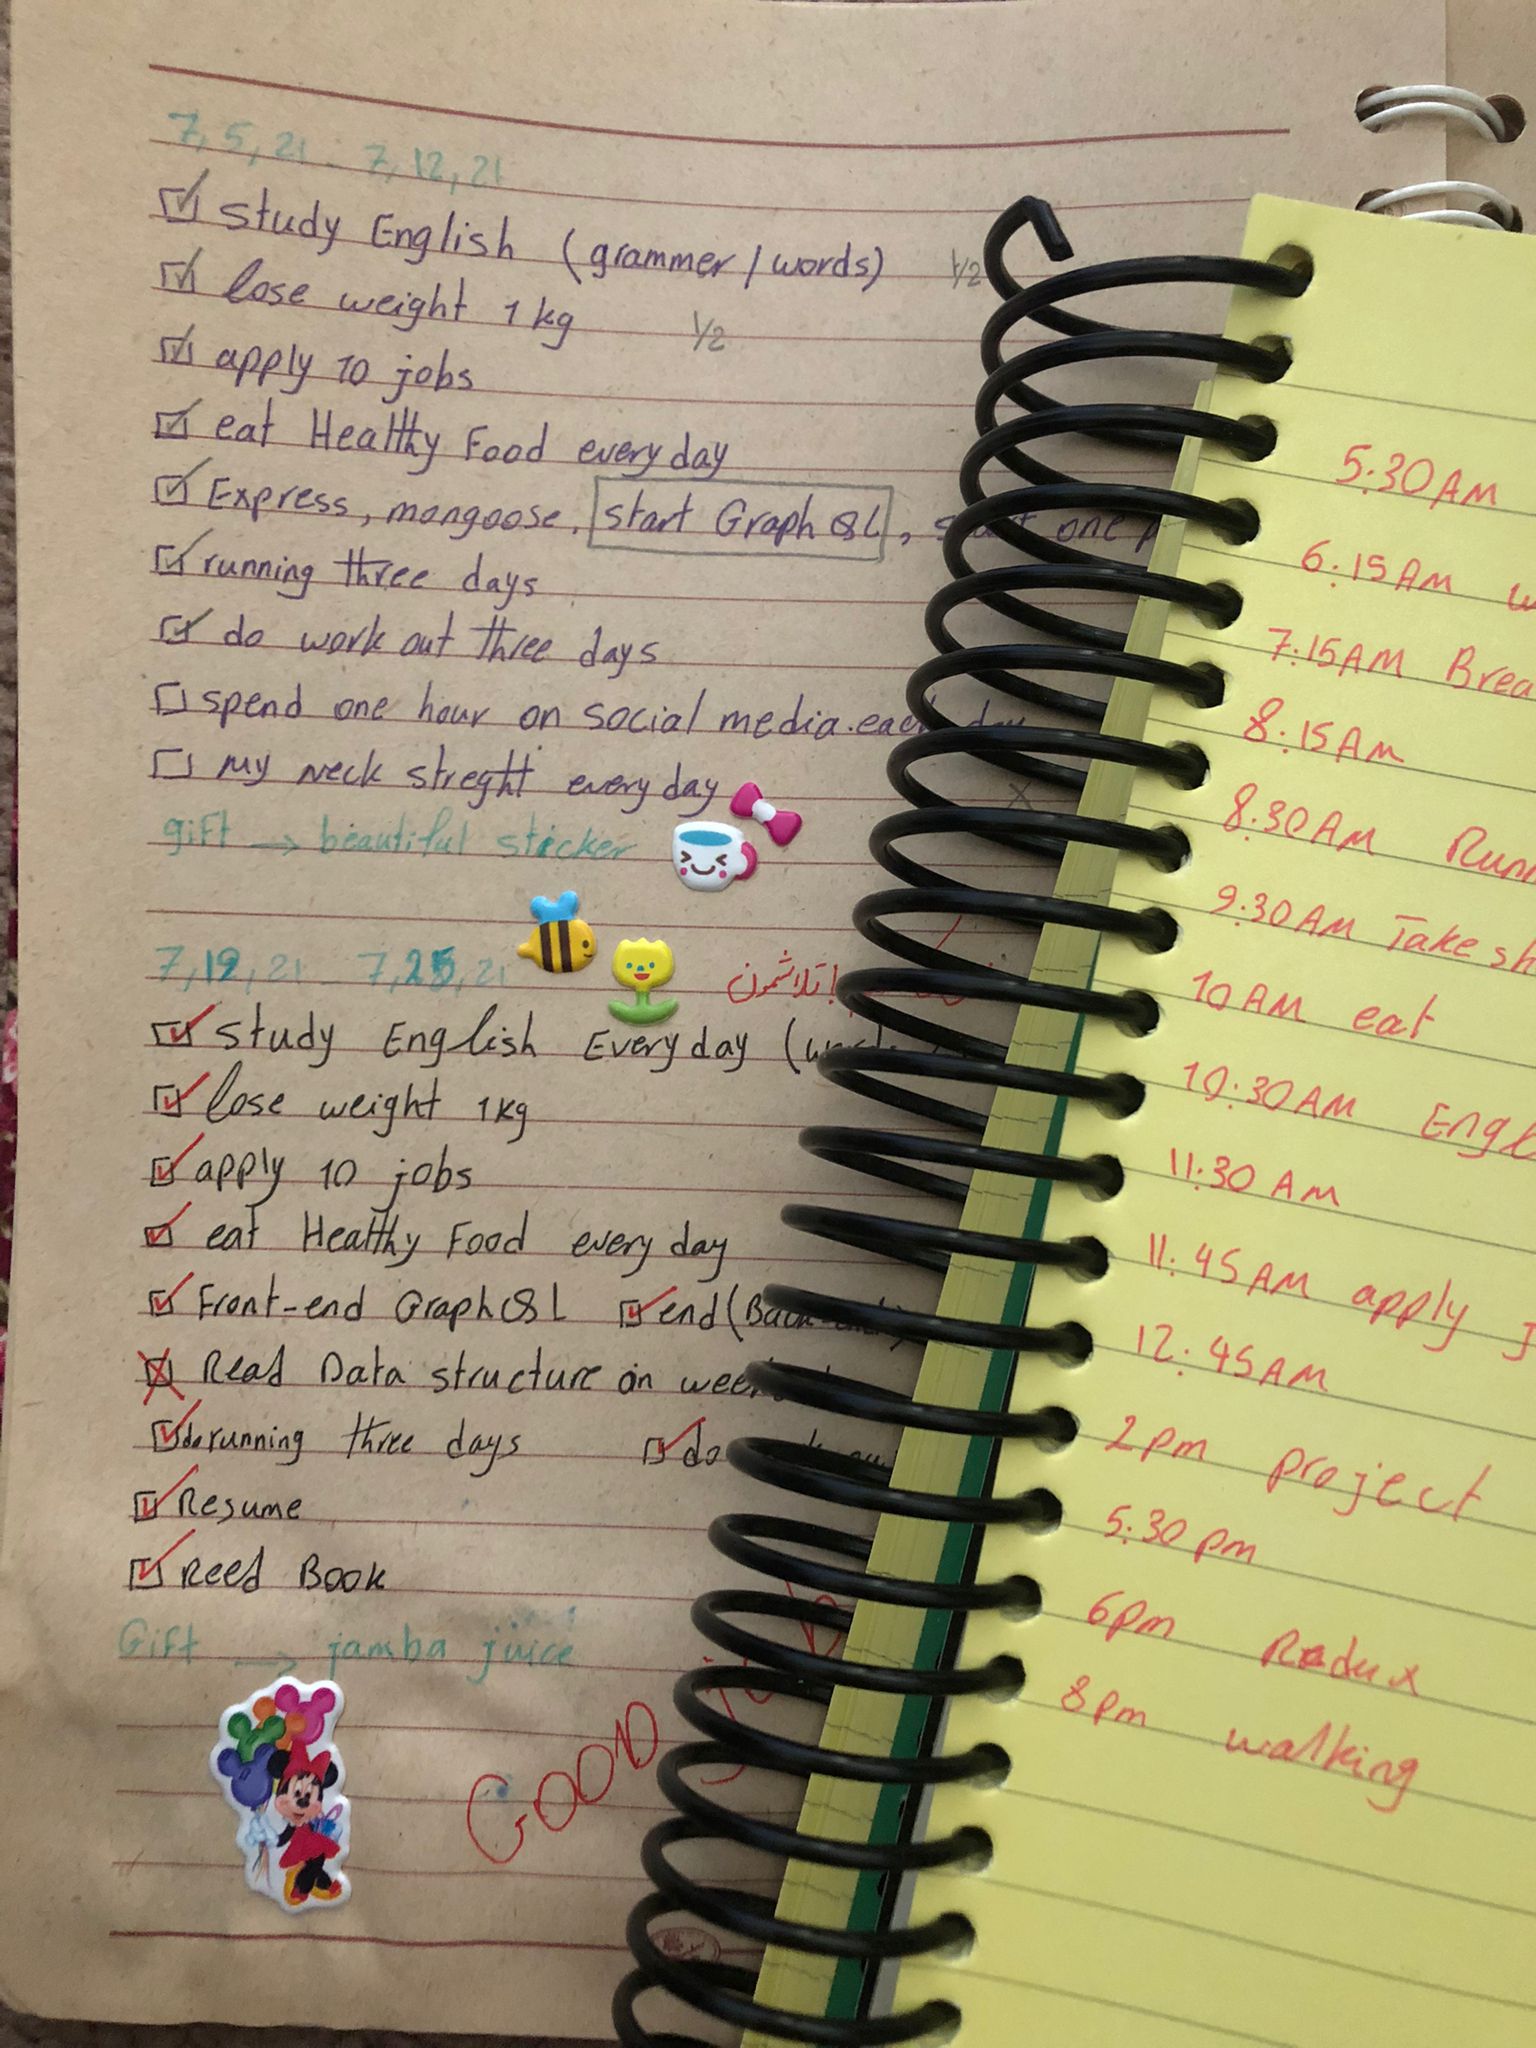 7, 5, 21 - 7, 12, 21
study English (grammer / words) 1/2
lose weight 1 kg 1/2
apply 10 jobs
eat Healthy Food every day
Express, mongoose, start GraphQL, start one
running three days
do work out three days
spend one hour on social media. each day
my neck streght every day x
gift → beautiful sticker
7, 19, 21 - 7, 25, 21
study English Every day
lose weight 1 kg
apply 10 jobs
eat Healthy Food every day
Front-end GraphQL end (Back-end)
Read Data structure on
do running three days do
Resume
Reed Book
Gift → jamba juice
GOOD job
5:30 AM
6:15 AM
7:15 AM Brea
8:15 AM
8:30 AM Runn
9:30 AM Take sh
10 AM eat
10:30 AM Engl
11:30 AM
11:45 AM apply J
12:45 AM
2 pm project
5:30 pm
6 pm Redux
8 pm walking